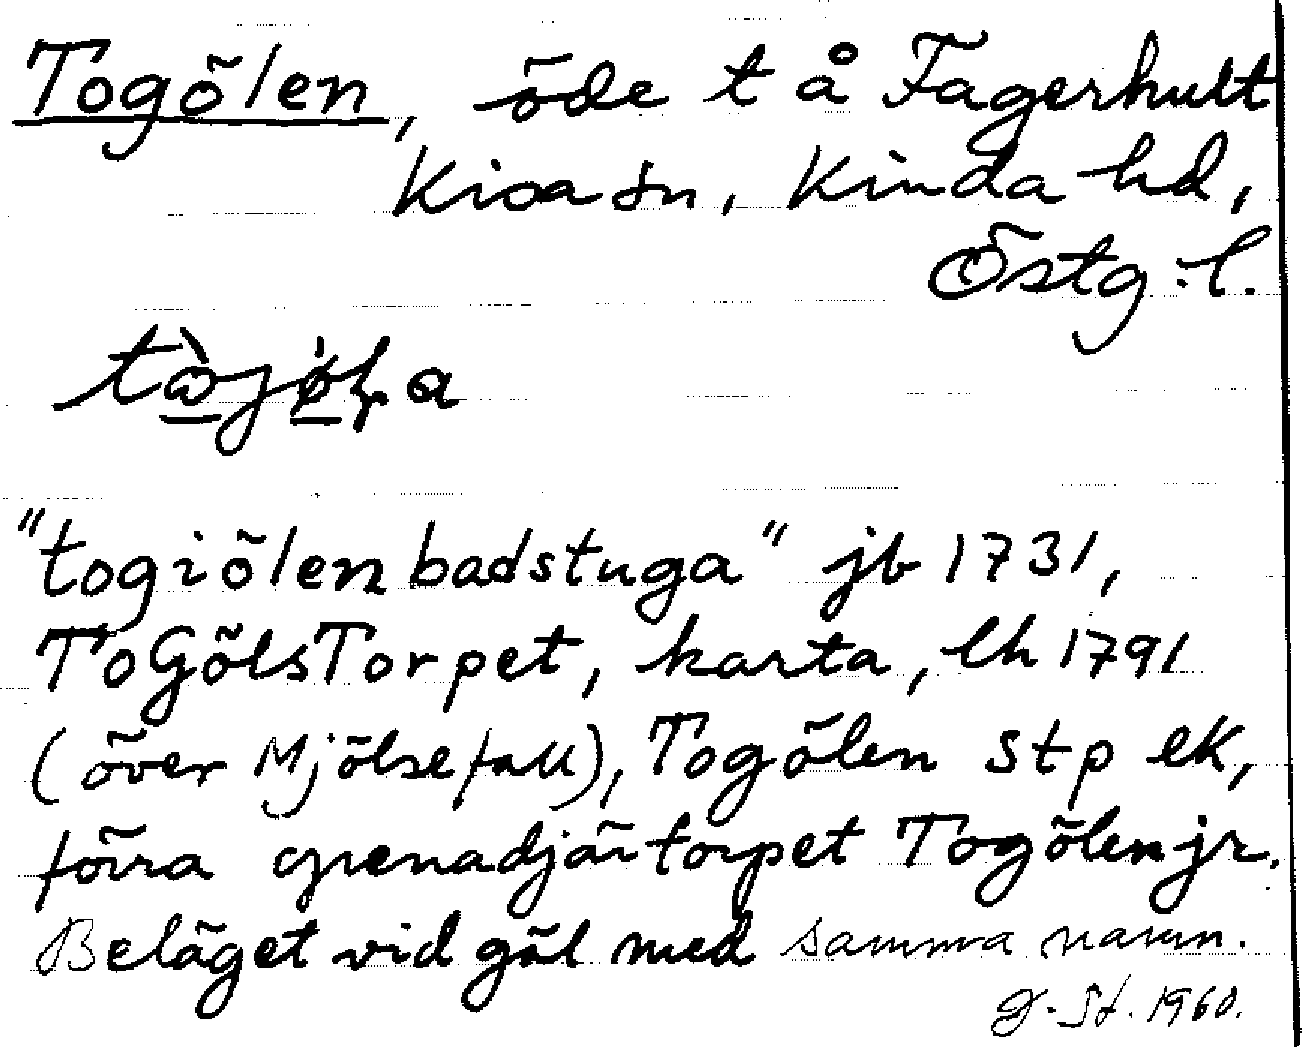 Togölen, öde t å Fagerhult
Kisa sn, Kinda hd,
Östg:l.
"togiölen badstuga" jb 1731,
ToGölsTorpet, karta, lh 1791
(över Mjölsefall), Togölen stp ek,
förra grenadjärtorpet Togölen jr.
Beläget vid göl med samma namn.
G. St. 1960.